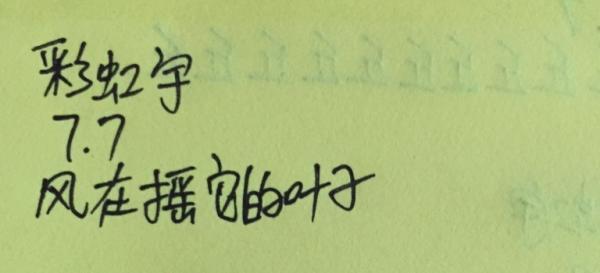 彩虹宇
7.7
风在摇它的叶子